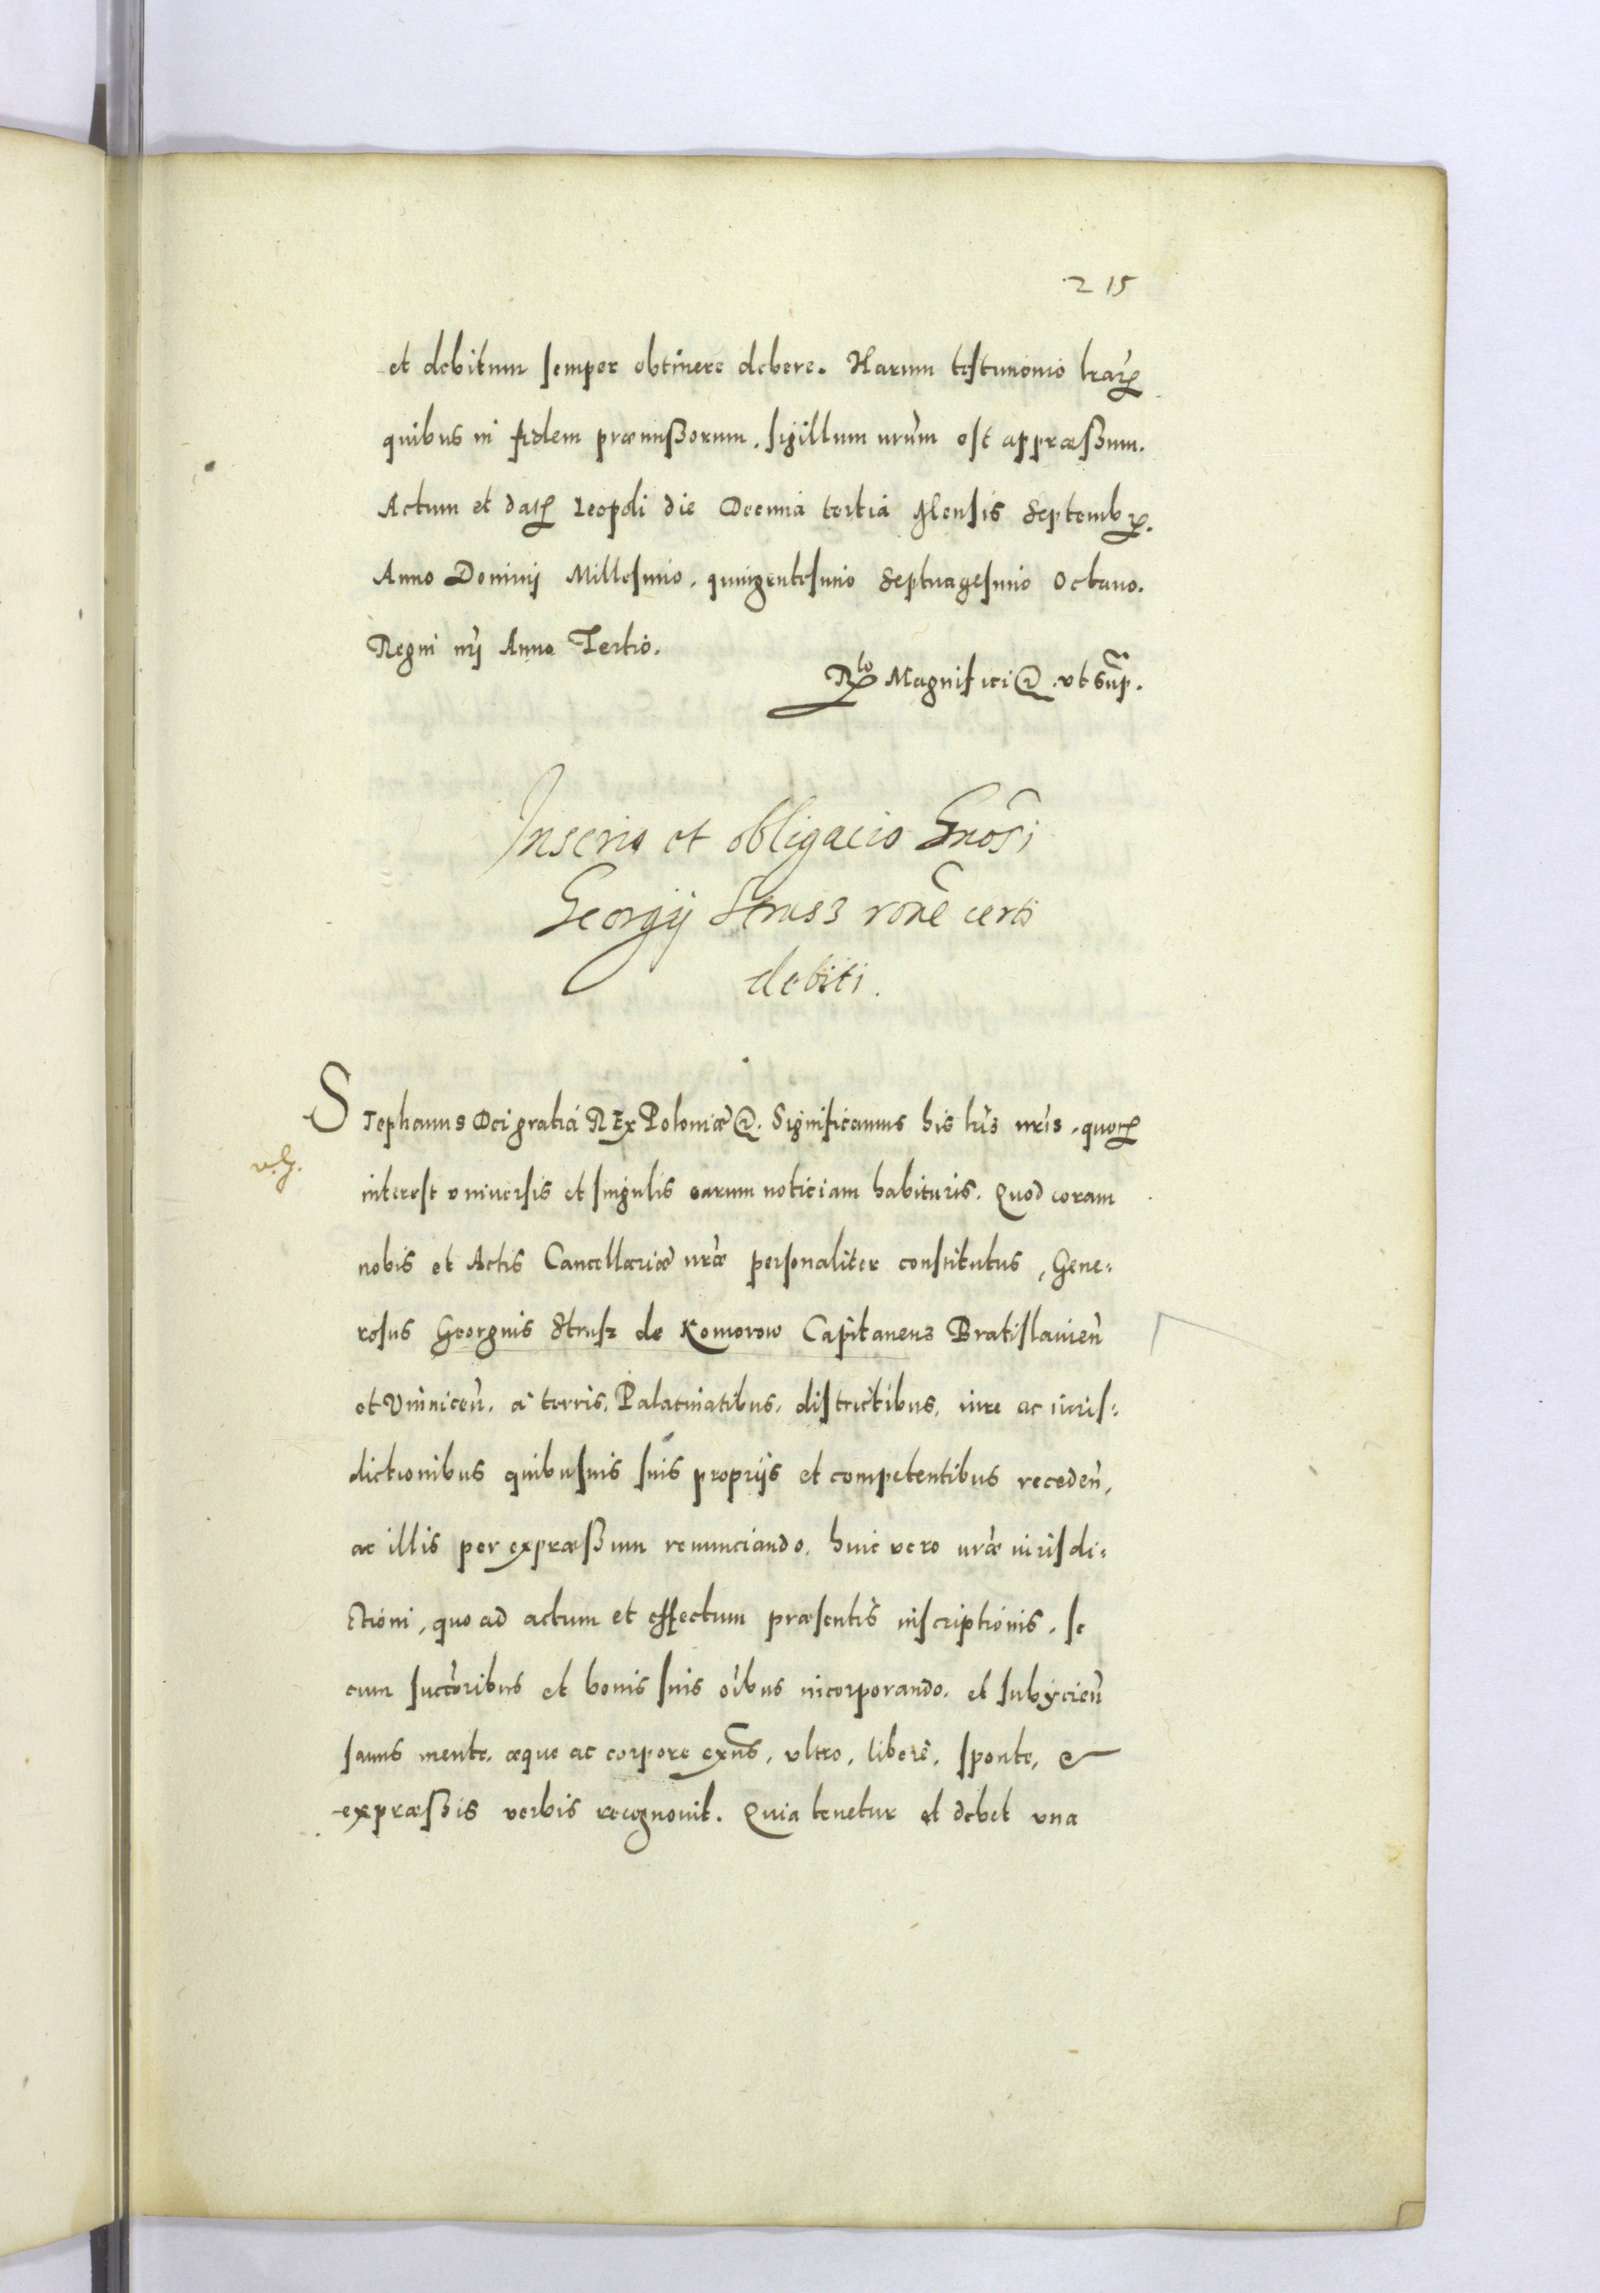 215
et debitum semper obtinere debere. Harum testimonio lrarꝝ
quibus in fidem præmißorum, sigillum nrum̃ est appræßum.
Actum et datꝝ Leopoli die Decima tertia Mensis Septembꝝ.
Anno Dominij Millesimo, quingentesimo Septuagesimo Octauo.
Regni nrĩ Anno Tertio.
Rlo Magnifici @ vt Sup̃.
Inscrio et obligacio Gnosĩ
Georgij Strus3 ronẽ certi
debiti.
Stephanus Dei gratiá REx Poloniæ @. Significamus his lrĩs nrĩs, quorꝝ
v. g.
interest vniuersis et singulis earum noticiam habituris. Quod coram
nobis et Actis Cancellariæ nræ̃ personaliter constitutus, Gene=
rosus Georgius Strusz de Komorow Capitaneus Bratislauien̄
et Vinnicen̄, à terris, Palatinatibus, districtibus, iure ac iuris=
dictionibus quibusuis suis proprijs et competentibus receden̄,
ac illis per expræßum renunciando, huic vero nræ̃ iurisdi=
ctioni, quo ad actum et effectum præsentis inscriptionis, se
cum succoribus̃ et bonis suis oĩbus incorporando, et subijcien̄
sanus mente, æque ac corpore exñs, vltro, liberè, sponte, &
expræßis verbis recognouit. Quia tenetur et debet vna